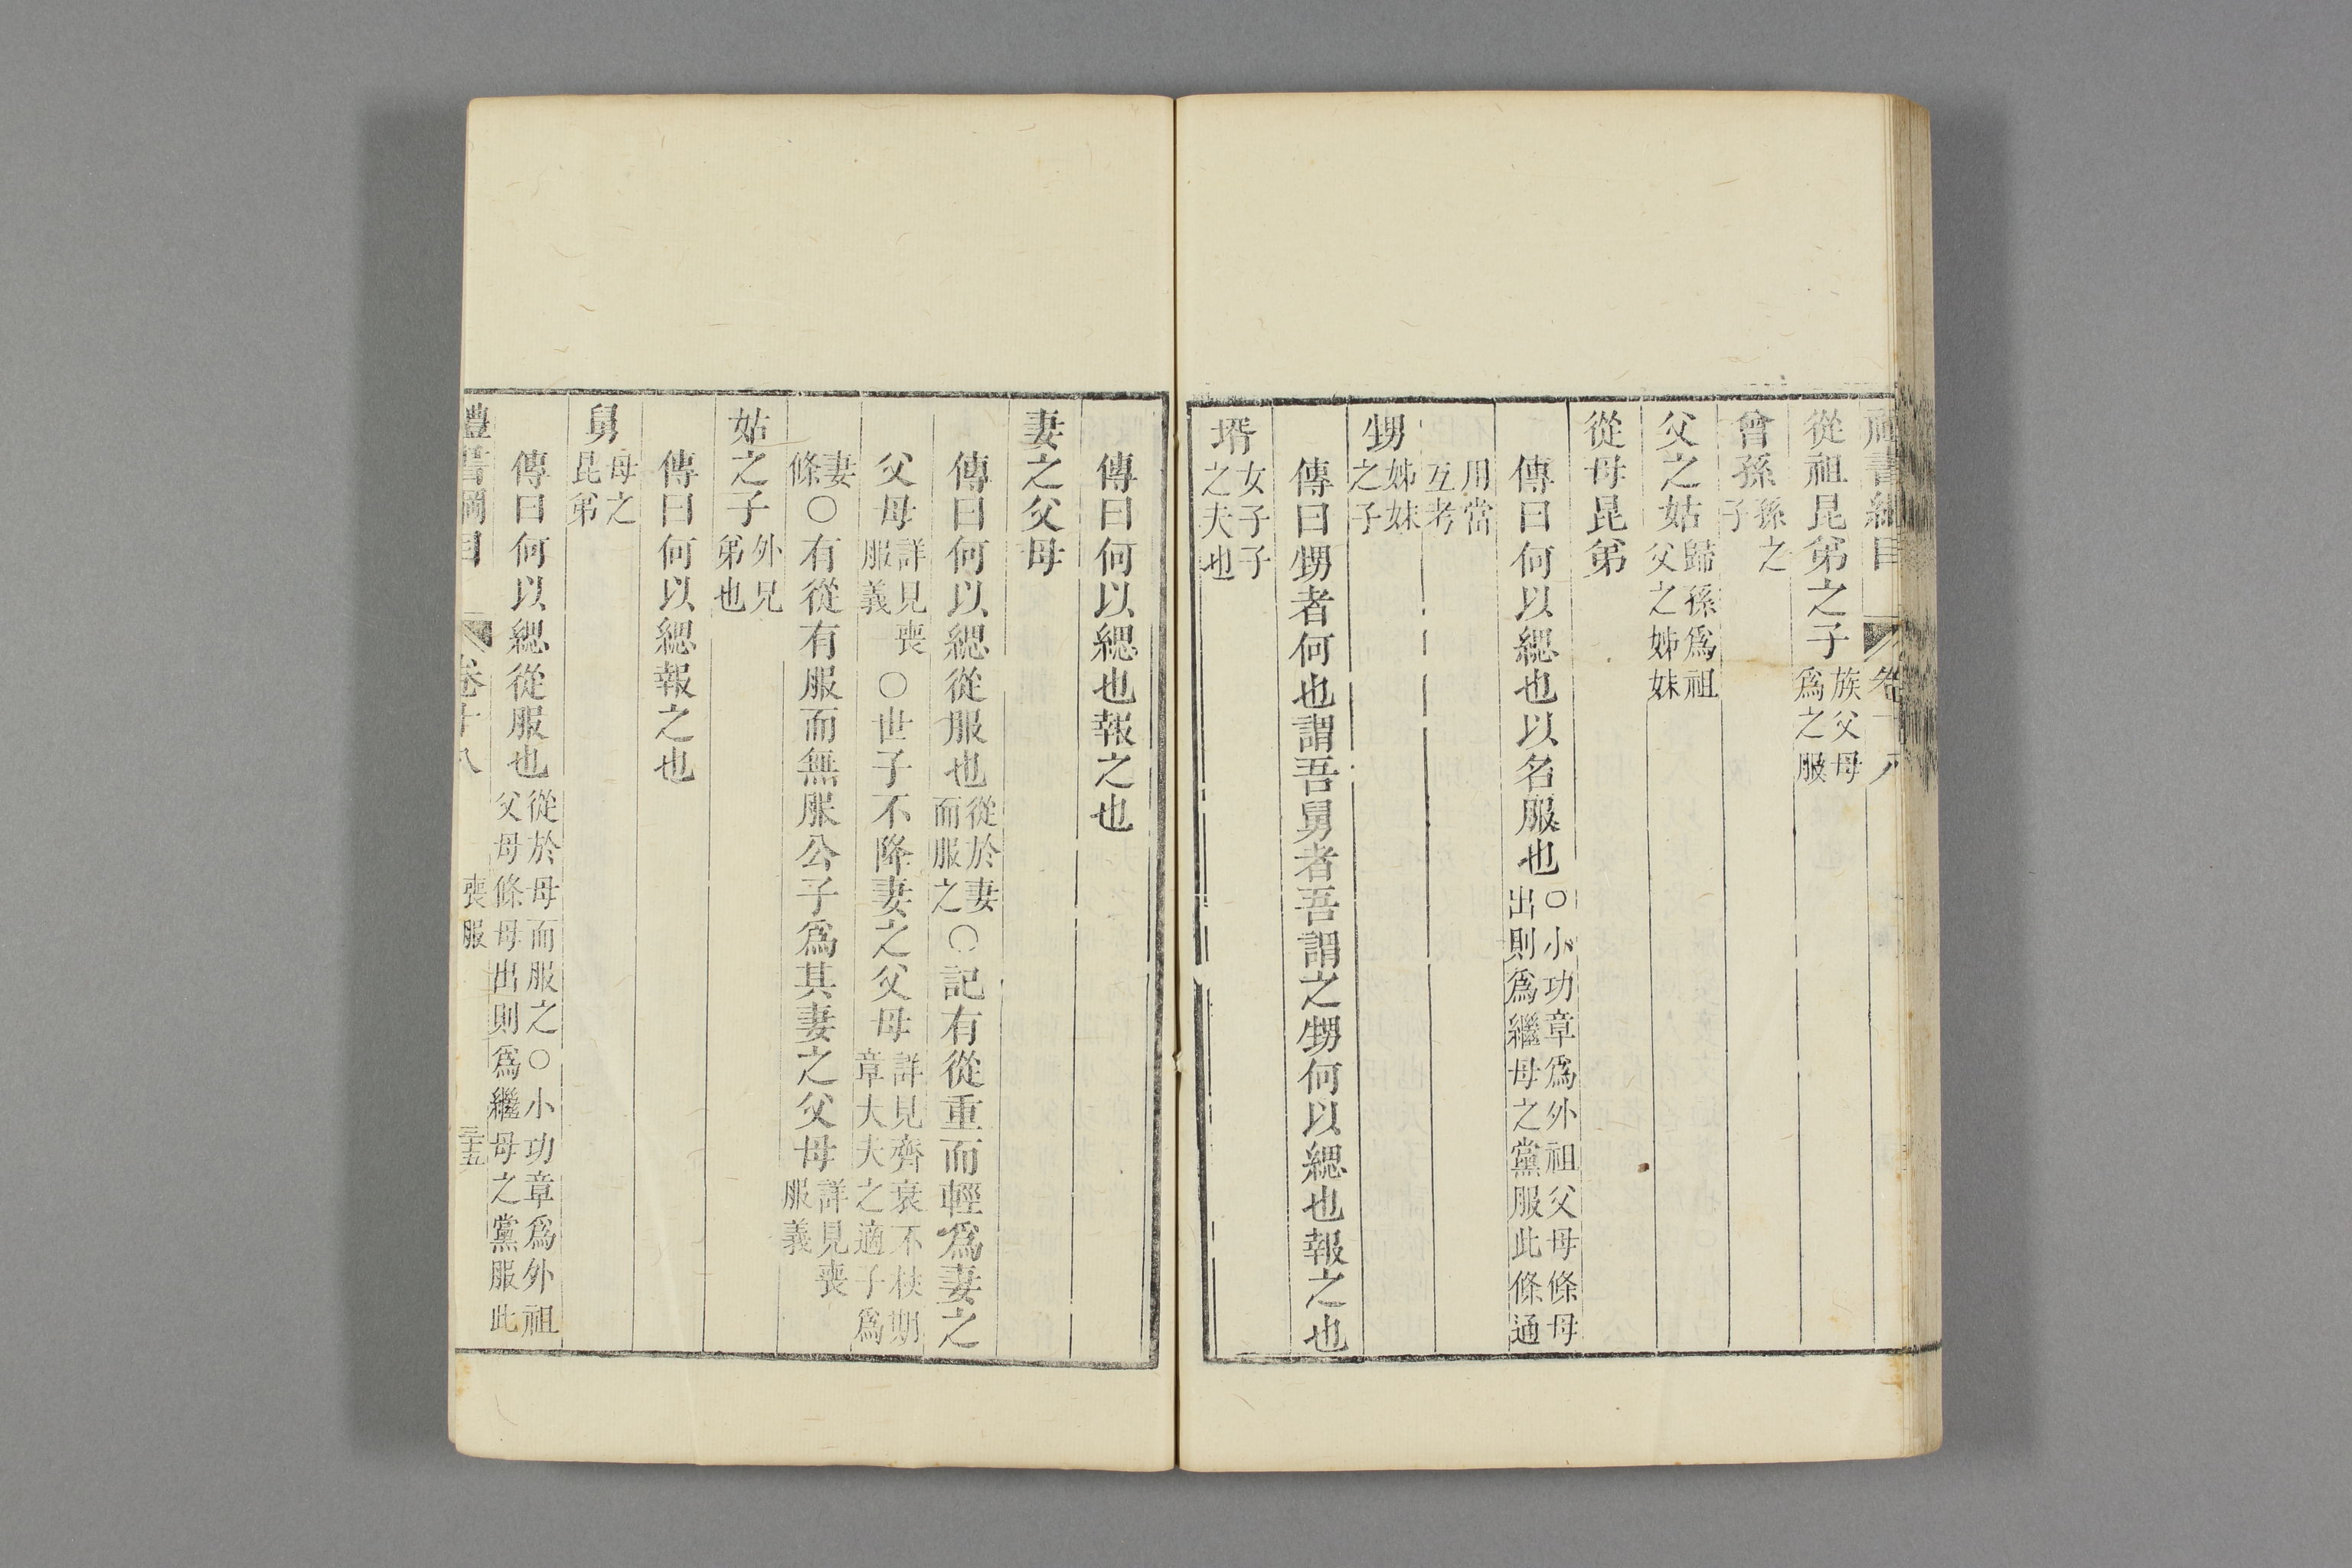 禮書綱目 卷十八
從祖昆弟之子族父母爲之服
曾孫孫之子
父之姑歸孫爲祖父之姊妹
從母昆弟
傳曰何以緦也以名服也○小功章爲外祖父母條母出則爲繼母之黨服此條通
用當互考
甥姊妹之子
傳曰甥者何也謂吾舅者吾謂之甥何以緦也報之也
壻女子子之夫也
傳曰何以緦也報之也
妻之父母
傳曰何以緦從服也從於妻而服之○記有從重而輕爲妻之
父母詳見喪服義○世子不降妻之父母詳見齊衰不杖期章大夫之適子爲
妻條○有從有服而無服公子爲其妻之父母詳見喪服義
姑之子外兄弟也
傳曰何以緦報之也
舅母之昆弟
傳曰何以緦從服也從於母而服之○小功章爲外祖父母條母出則爲繼母之黨服此
禮書綱目 卷十八 喪服 三十五